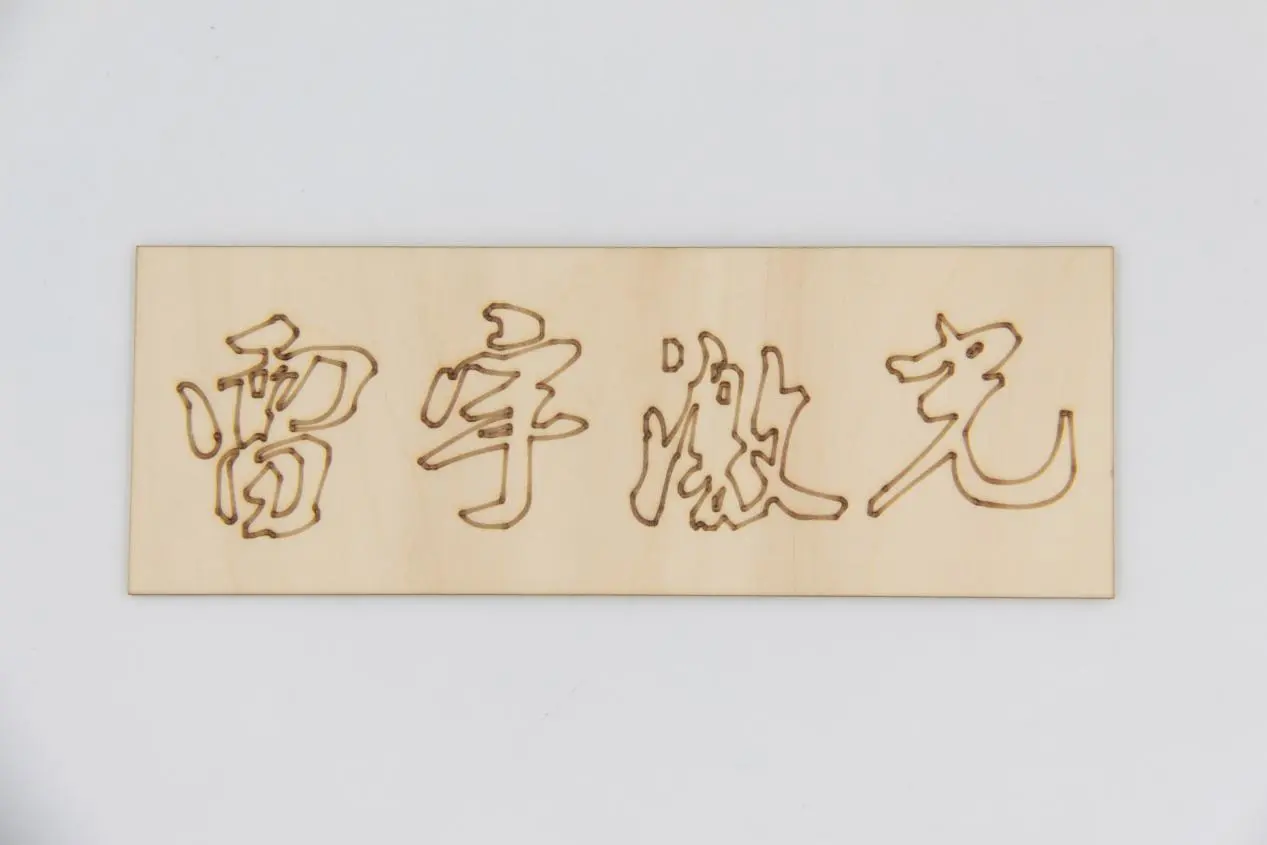 雷宇激光